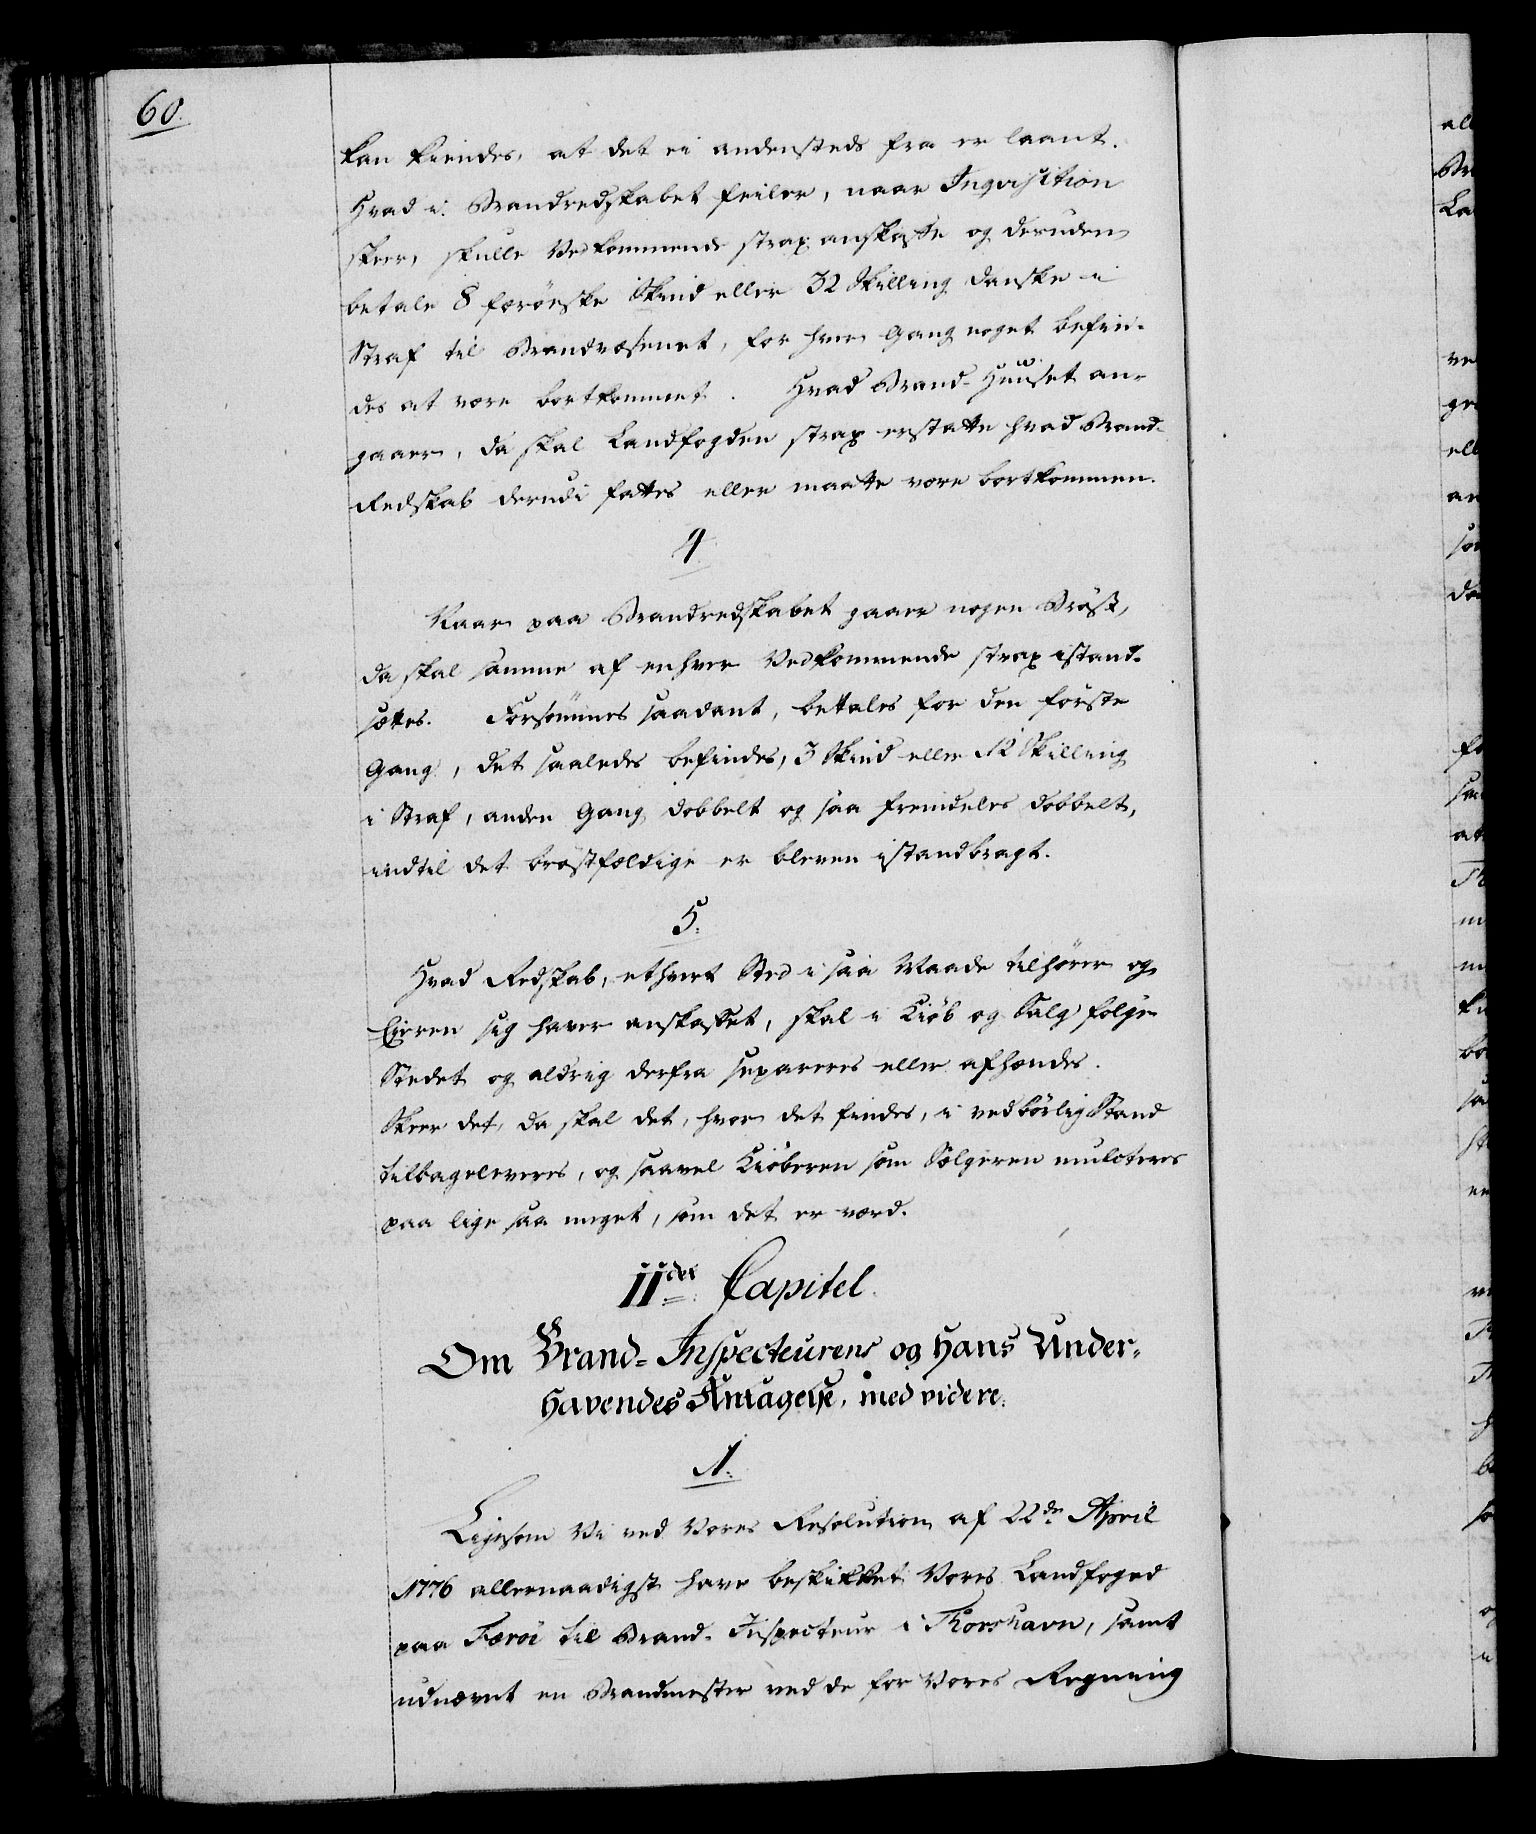 60.
kan kiendes, at det ei andensteds fra er laant.
Hvad i Brandredskabet feiler, naar Inqvisition
skeer, skulle Vedkommende strax anskaffe og deruden
betale 8 færöeske Skind eller 32 Skilling danske i
Straf til Brandvæsenet, for hver Gang noget befin-
des at være bortkommet. Hvad Brand-Huuset an-
gaaer, da skal Landfogden strax erstatte hvad Brand-
Redskab derudi fattes eller maatte være bortkommen.
4.
Naar paa Brandredskabet gaaer nogen Bröst,
da skal samme af enhver Vedkommende strax istand-
sættes. Forsömmes saadant, betales for den förste
Gang, det saaledes befindes, 3 Skind eller 12 Skilling
i Straf, anden Gang dobbelt og saa fremdeles dobbelt,
indtil det bröstfældige er bleven istandbragt.
5.
Hvad Redskab, ethvert Sted i saa Maade tilhörer og
Eieren sig haver anskaffet, skal i Kiöb og Salg fölge
Stedet og aldrig derfra separeres eller afhændes.
Skeer det, da skal det, hvor det findes, i vedbörlig Stand
tilbageleveres, og saavel Kiöberen som Sælgeren mulcteres
paa lige saa meget, som det er værd.
IIdet Capitel.
Om Brand-Inspecteurens og Hans Under-
havendes Antagelse, med videre.
1.
Ligesom Vi ved Vores Resolution af 22de April
1776 allernaadigst have beskikket Vores Landfoged
paa Færöe til Brand-Inspecteur i Thorshavn, samt
udnævnt en Brandmester ved de for Vores Regning